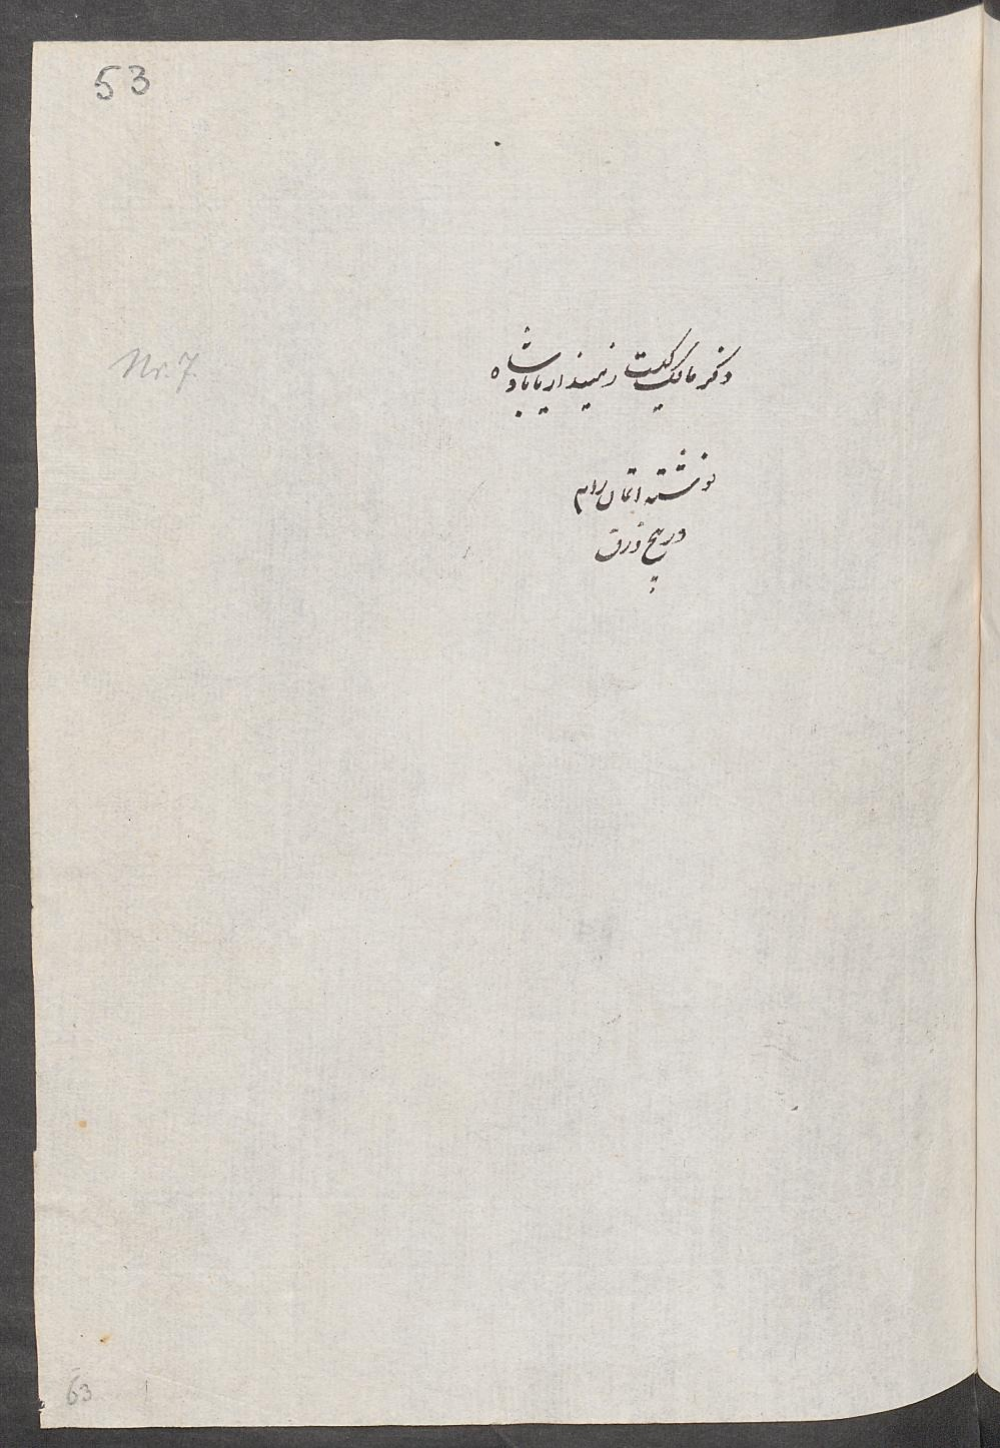 53
Nr. 7
ذکر مالک کیست زمیندار یا بادشاه
نوشته اتمان رام
در پنج ورق
63